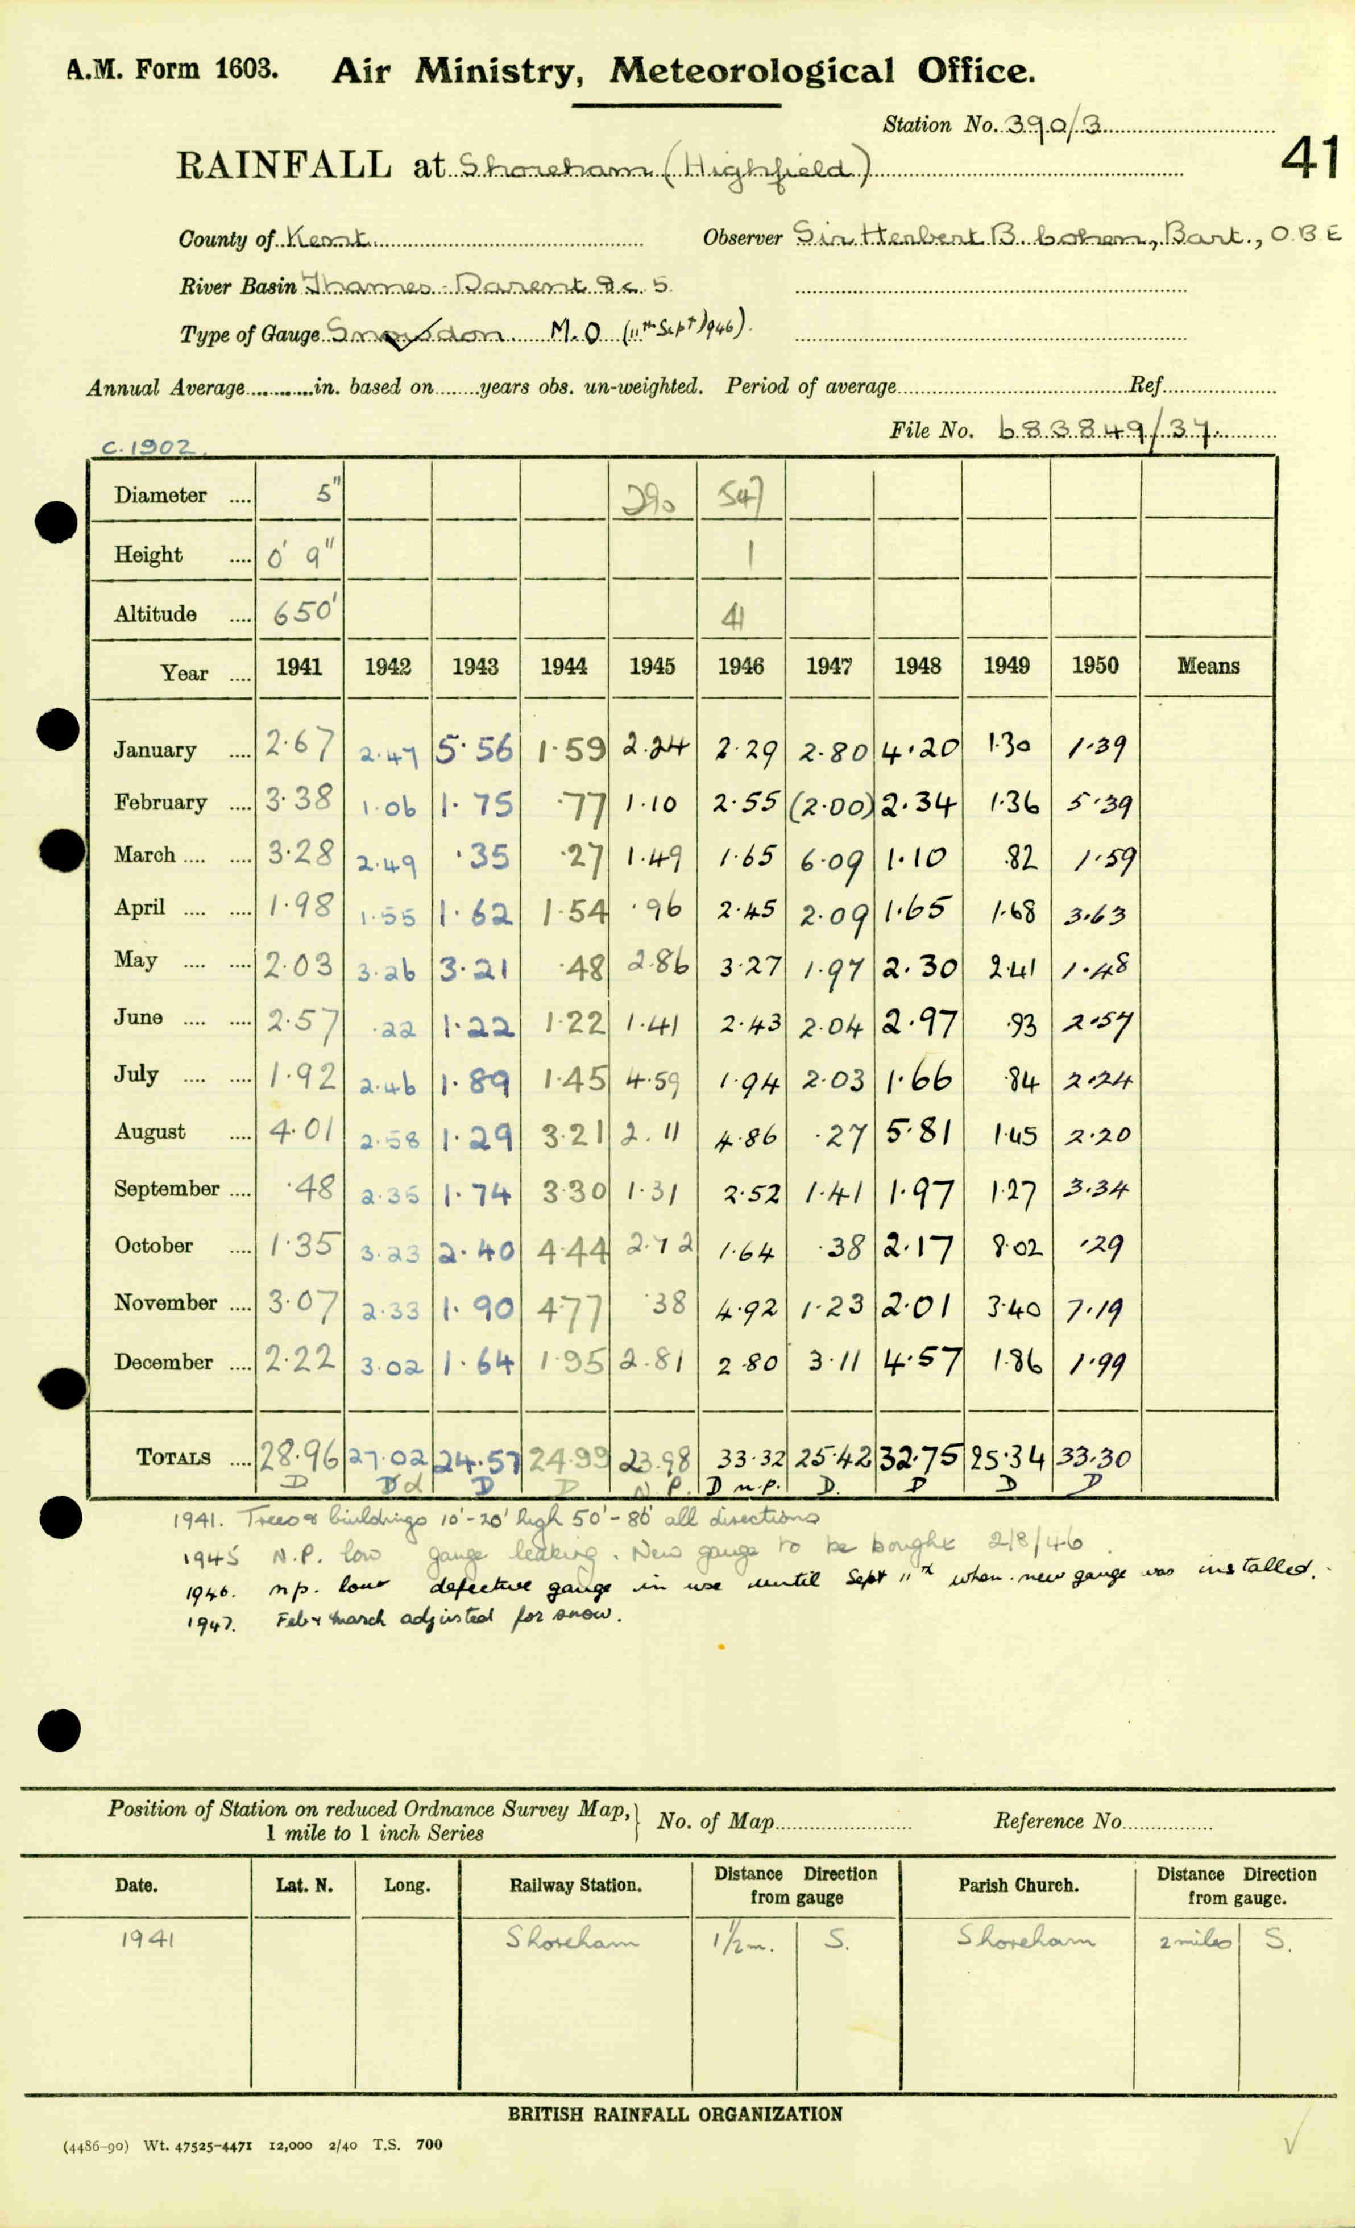 A.M. Form 1603. Air Ministry, Meteorological Office.
Station No. 390/3
41
RAINFALL at Shoreham (Highfield)
County of Kent Observer Sir Herbert B. Cohen, Bart., O B E
River Basin Thames - Darent &c 5
Type of Gauge Snowdon. M.O (11th Sept 1946).
Annual Average in. based on years obs. un-weighted. Period of average Ref.
File No. 683849/37.
C. 1902.
Diameter .... 5" 290 547
Height .... 0' 9" 1
Altitude .... 650' 41
Year .... 1941 1942 1943 1944 1945 1946 1947 1948 1949 1950 Means
January .... 2.67 2.47 5.56 1.59 2.24 2.29 2.80 4.20 1.30 1.39
February .... 3.38 1.06 1.75 .77 1.10 2.55 (2.00) 2.34 1.36 5.39
March .... .... 3.28 2.49 .35 .27 1.49 1.65 6.09 1.10 .82 1.59
April .... .... 1.98 1.55 1.62 1.54 .96 2.45 2.09 1.65 1.68 3.63
May .... .... 2.03 3.26 3.21 .48 2.86 3.27 1.97 2.30 2.41 1.48
June .... .... 2.57 .22 1.22 1.22 1.41 2.43 2.04 2.97 .93 2.57
July .... .... 1.92 2.46 1.89 1.45 4.59 1.94 2.03 1.66 .84 2.24
August .... 4.01 2.58 1.29 3.21 2.11 4.86 .27 5.81 1.45 2.20
September .... .48 2.35 1.74 3.30 1.31 2.52 1.41 1.97 1.27 3.34
October .... 1.35 3.23 2.40 4.44 2.72 1.64 .38 2.17 8.02 .29
November .... 3.07 2.33 1.90 4.77 .38 4.92 1.23 2.01 3.40 7.19
December .... 2.22 3.02 1.64 1.95 2.81 2.80 3.11 4.57 1.86 1.99
TOTALS .... 28.96 27.02 24.57 24.99 23.98 33.32 25.42 32.75 25.34 33.30
D D d D D N.P. D n.p. D. D D D
1941. Trees & buildings 10'-20' high 50'-80' all directions
1945 N.P. low gauge leaking. New gauge to be bought 2/8/46.
1946. n.p. low defective gauge in use until Sept 11th when new gauge was installed.
1947. Feb & March adjusted for snow.
Position of Station on reduced Ordnance Survey Map, No. of Map Reference No.
1 mile to 1 inch Series
Date. Lat. N. Long. Railway Station. Distance Direction from gauge Parish Church. Distance Direction from gauge.
1941 Shoreham 1½ m. S. Shoreham 2 miles S.
BRITISH RAINFALL ORGANIZATION
(4486-90) Wt. 47525-4471 12,000 2/40 T.S. 700